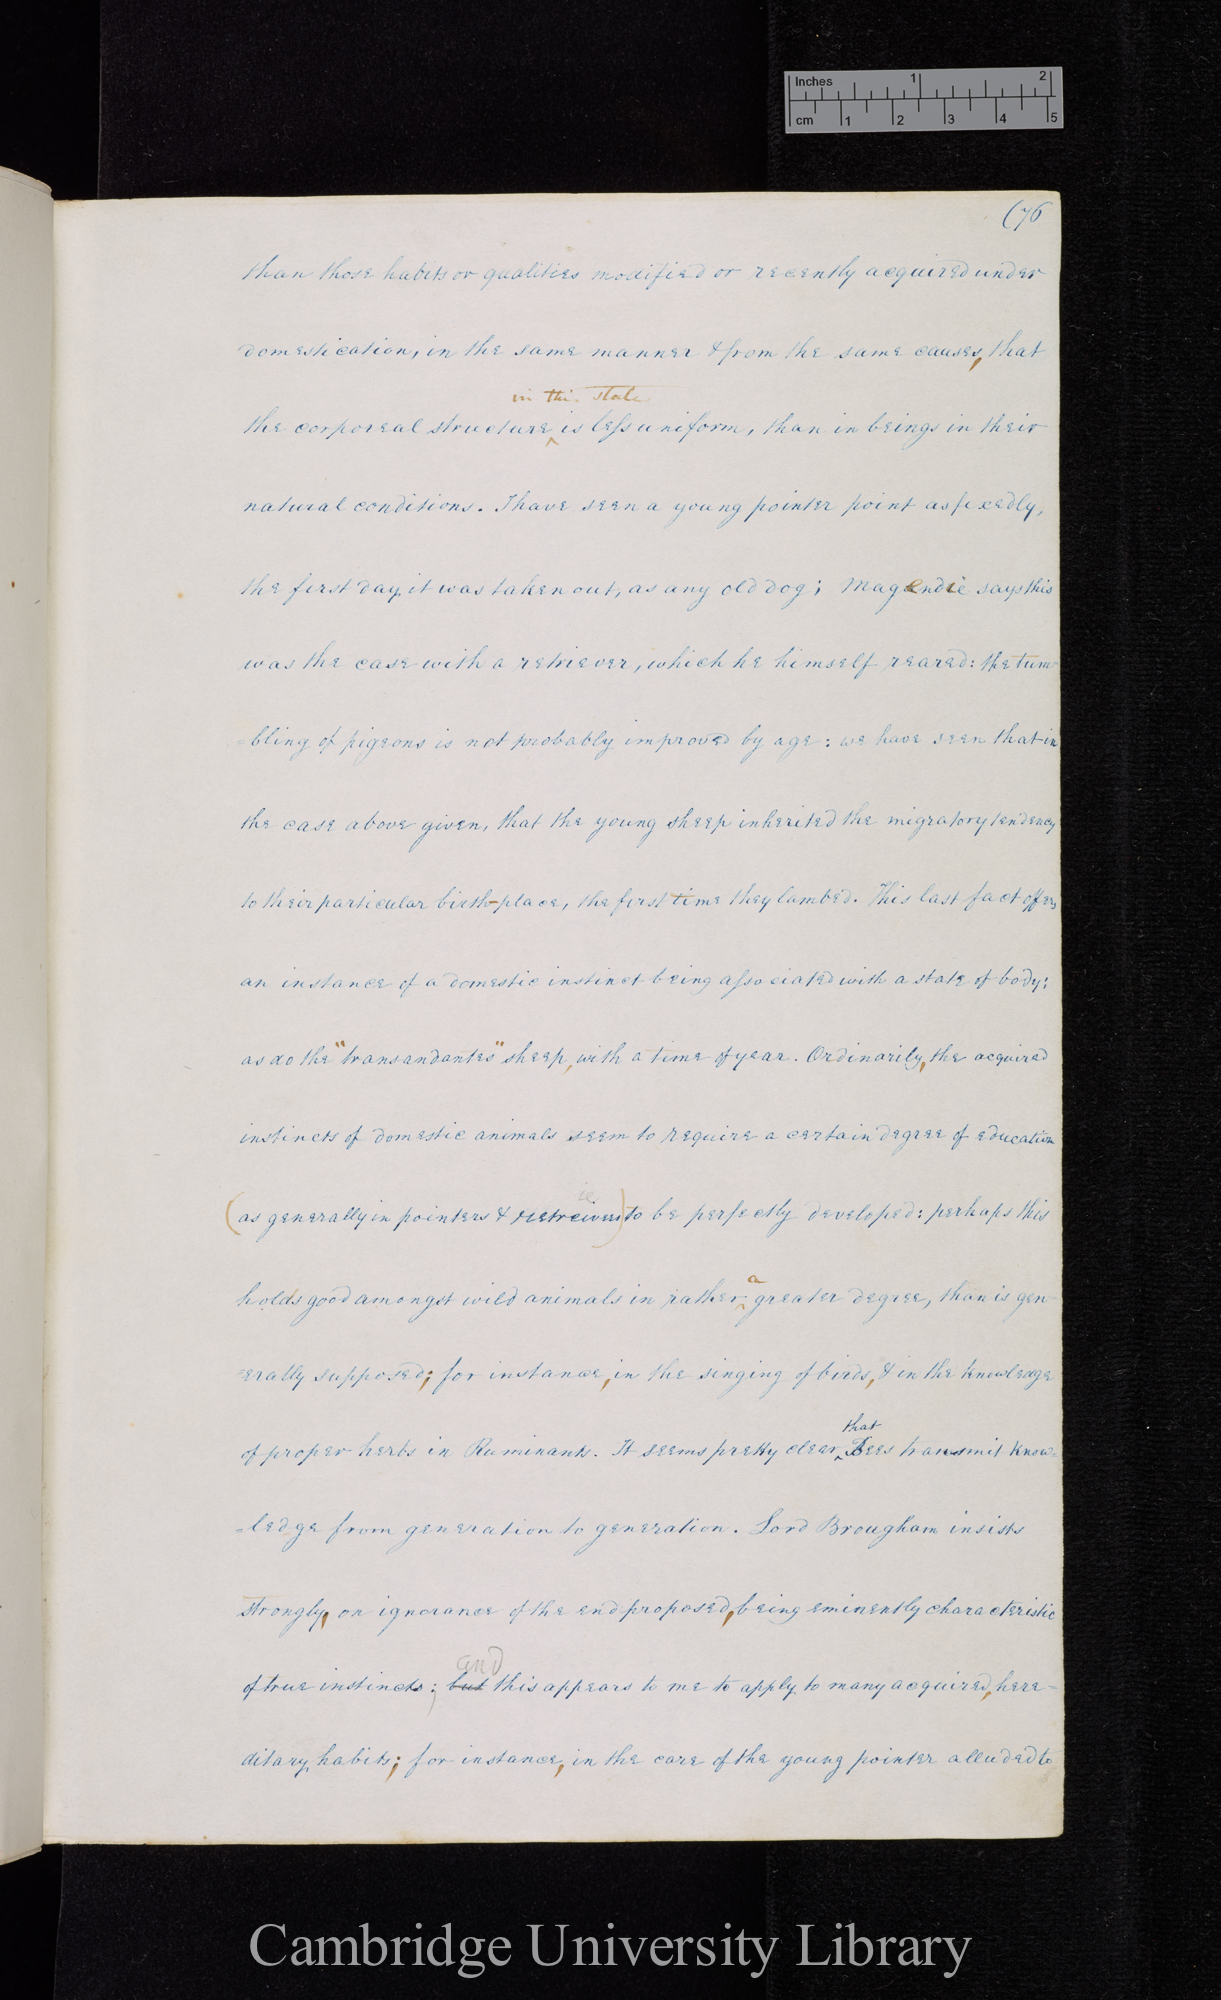 Inches 1 2
cm 1 2 3 4 5
(76
than those habits or qualities modified or recently acquired under
domestication, in the same manner & from the same causes, that
in this state
the corporeal structure is less uniform, than in beings in their
natural conditions. I have seen a young pointer point as fixedly,
the first day it was taken out, as any old dog; Magendie says this
was the case with a retriever, which he himself reared: the tum-
-bling of pigeons is not probably improved by age: we have seen that in
the case above given, that the young sheep inherited the migratory tendency
to their particular birth-place, the first time they lambed. This last fact offers
an instance of a domestic instinct being associated with a state of body;
as do the "transandantes" sheep, with a time of year. Ordinarily, the acquired
instincts of domestic animals seem to require a certain degree of education
ie
(as generally in pointers & retreivers) to be perfectly developed: perhaps this
a
holds good amongst wild animals in rather greater degree, than is gen-
=erally supposed; for instance, in the singing of birds, & in the knowledge
that
of proper herbs in Ruminants. It seems pretty clear, Bees transmit know-
=ledge from generation to generation. Lord Brougham insists
strongly, on ignorance of the end proposed, being eminently characteristic
and
of true instincts; but this appears to me to apply to many acquired, here-
ditary habits; for instance, in the care of the young pointer alluded to
Cambridge University Library